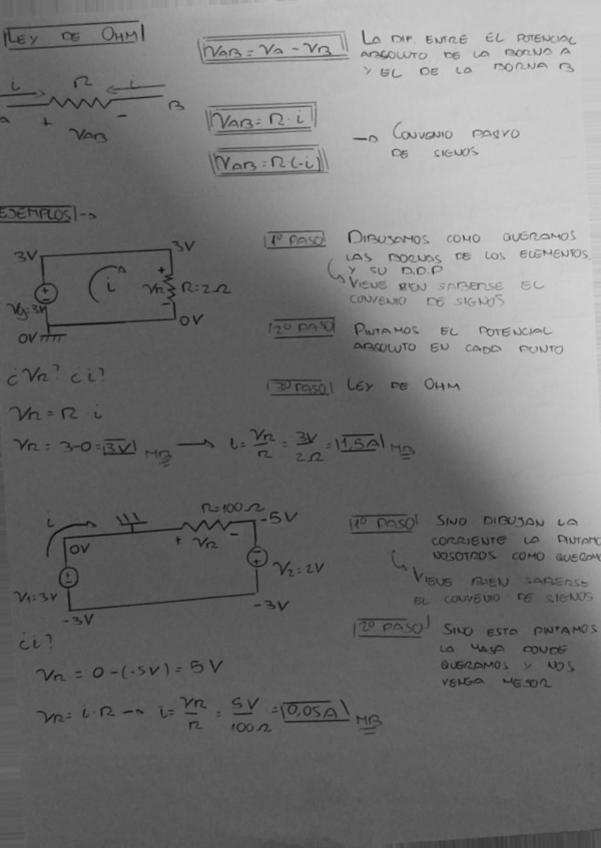 LEY DE OHM
VAB = VA - VB
LA DIF. ENTRE EL POTENCIAL
ABSOLUTO DE LA BORNA A
Y EL DE LA BORNA B
i R i
A + - B
VAB
VAB = R · i
VAB = R (-i)
→ CONVENIO PASIVO
DE SIGNOS
EJEMPLOS →
3V 3V
Vg=3V i + VR - R=2Ω
0V 0V
1º PASO DIBUJAMOS COMO QUERAMOS
LAS BORNAS DE LOS ELEMENTOS
Y SU D.D.P
↳ VIENE BIEN SABERSE EL
CONVENIO DE SIGNOS
2º PASO PINTAMOS EL POTENCIAL
ABSOLUTO EN CADA PUNTO
¿VR? ¿i?
3º PASO LEY DE OHM
VR = R · i
VR = 3-0 = 3V MB → i = VR/R = 3V/2Ω = 1,5A MB
R=100Ω
i 0V + VR - -5V
V1=3V V2=2V
-3V -3V
1º PASO SINO DIBUJAN LA
CORRIENTE LA PINTAMO
NOSOTROS COMO QUERAMO
↳ VIENE BIEN SABERSE
EL CONVENIO DE SIGNOS
¿i?
2º PASO SINO ESTA PINTAMOS
LA MASA DONDE
QUERAMOS Y NOS
VENGA MEJOR
VR = 0-(-5V) = 5V
VR = i · R → i = VR/R = 5V/100Ω = 0,05A MB